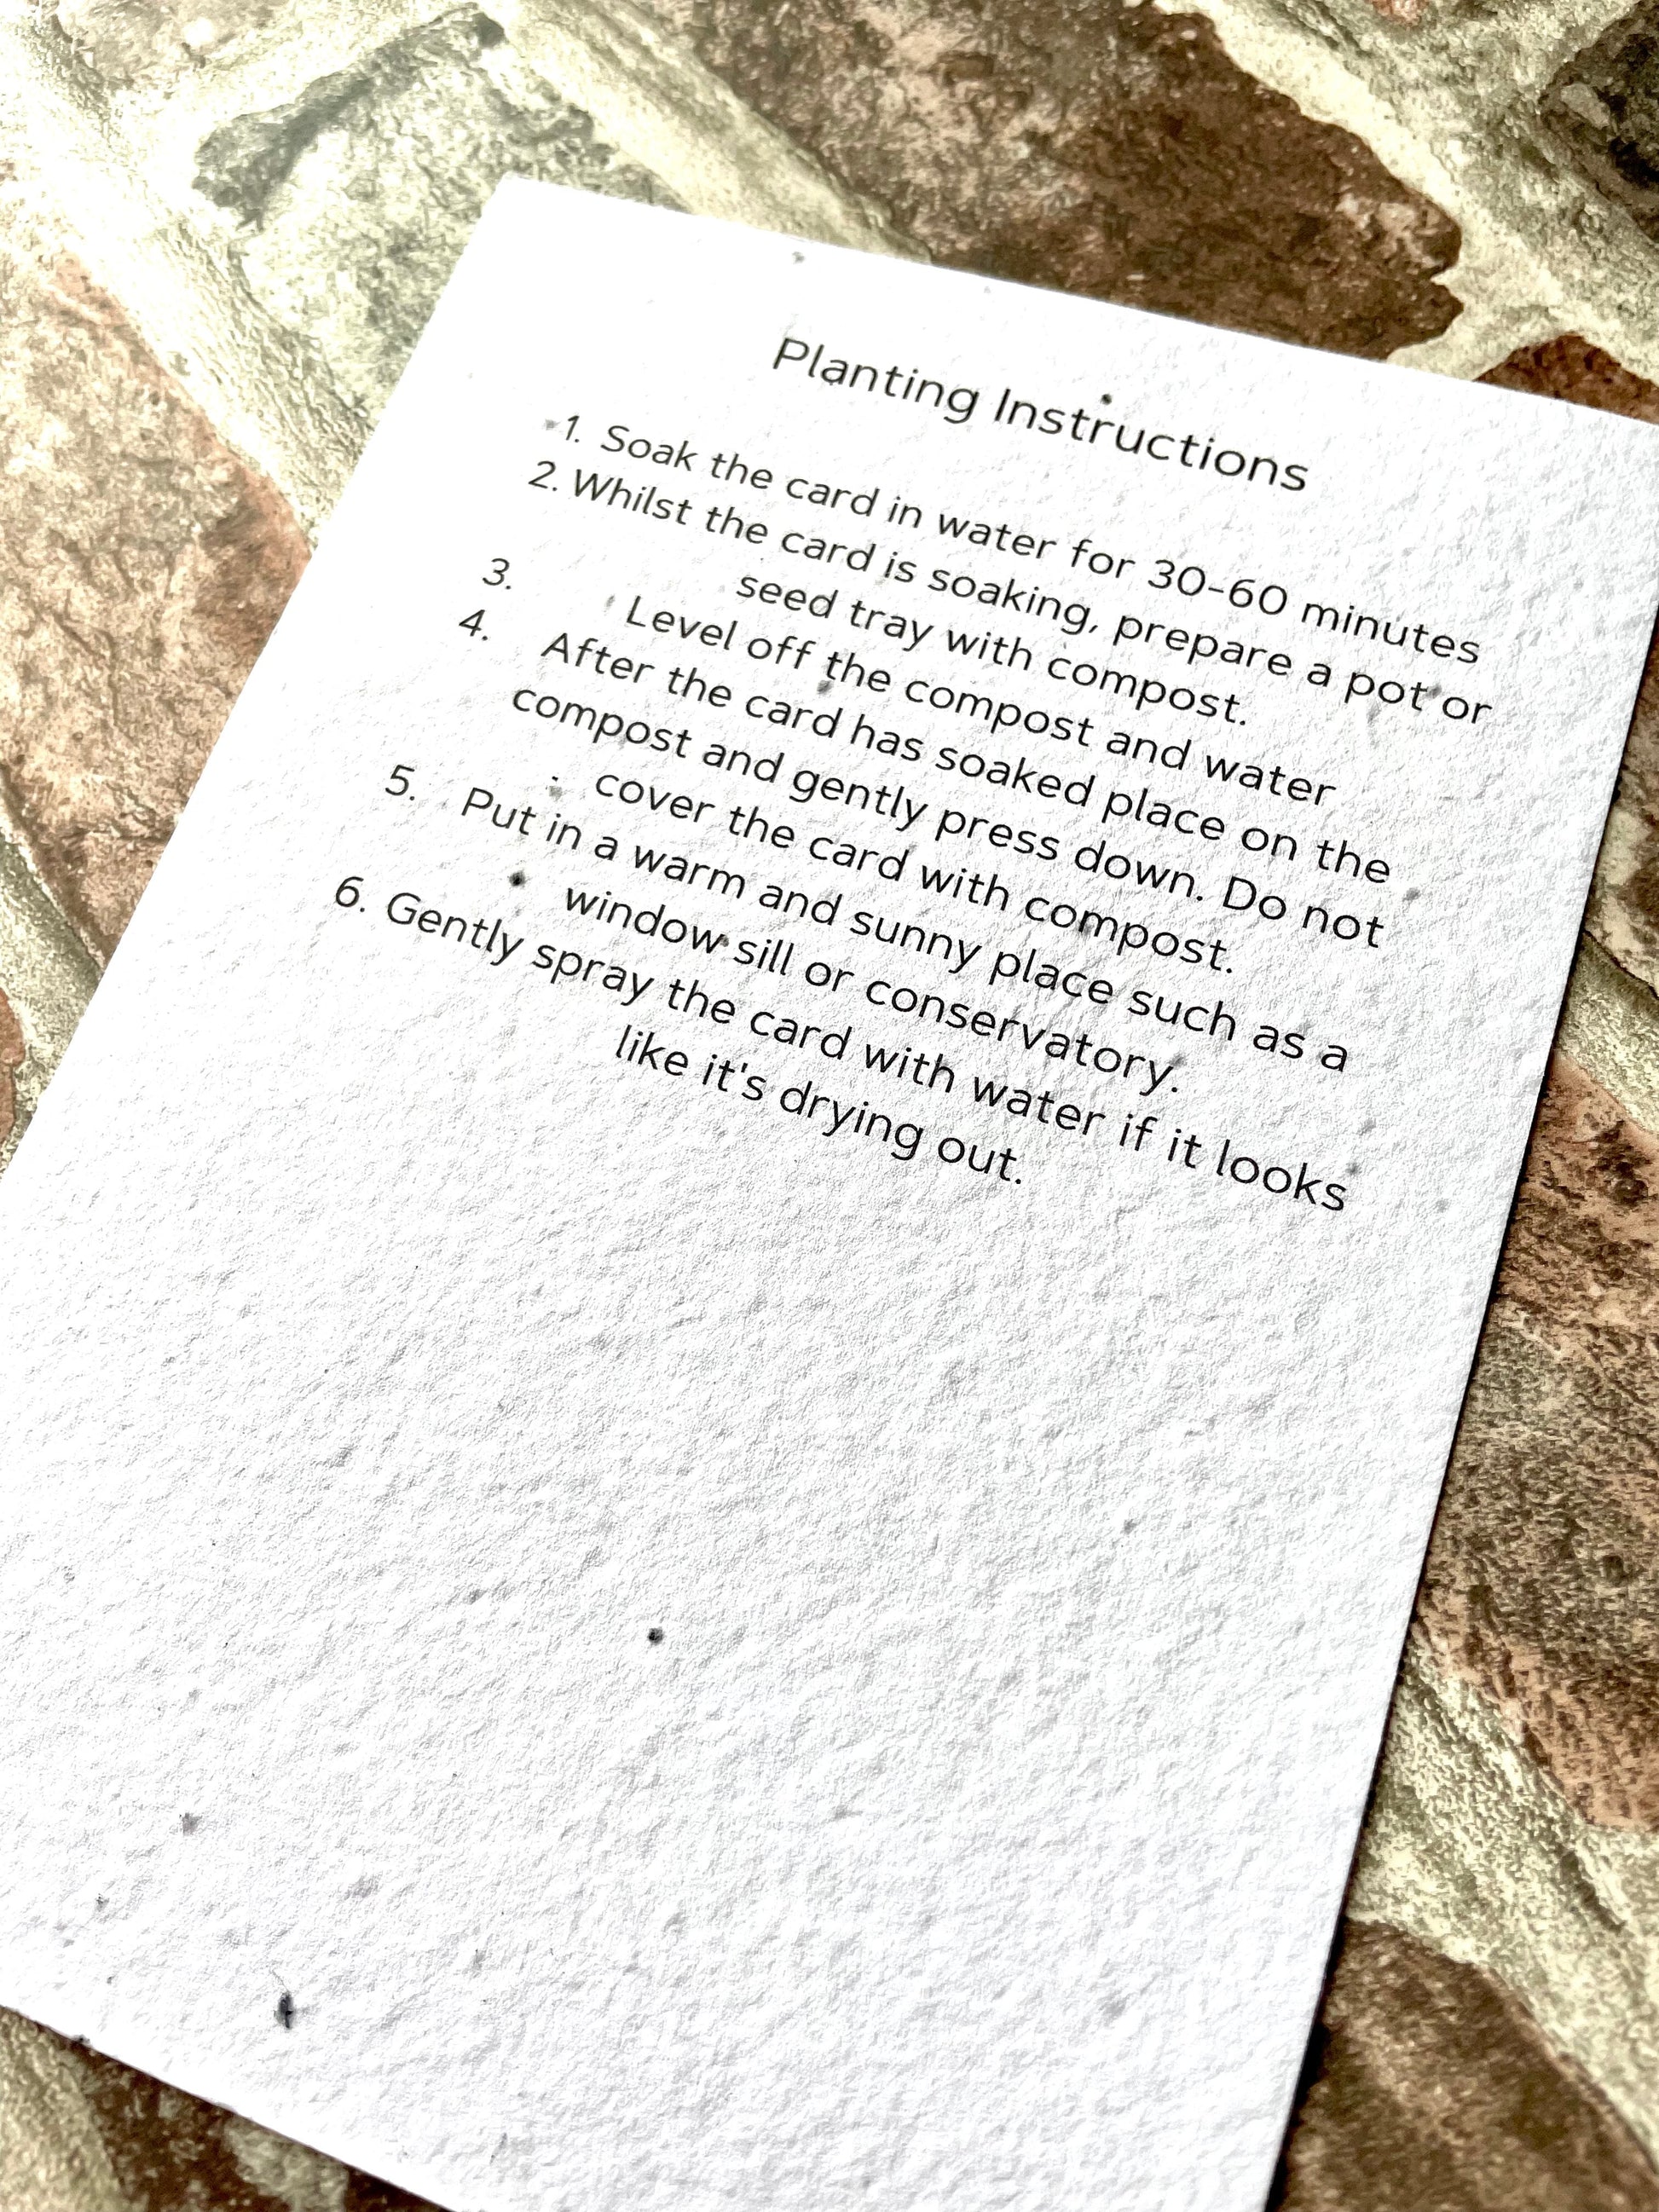 Planting Instructions
1. Soak the card in water for 30-60 minutes
2. Whilst the card is soaking, prepare a pot or
seed tray with compost.
3. Level off the compost and water
4. After the card has soaked place on the
compost and gently press down. Do not
cover the card with compost.
5. Put in a warm and sunny place such as a
window sill or conservatory.
6. Gently spray the card with water if it looks
like it's drying out.